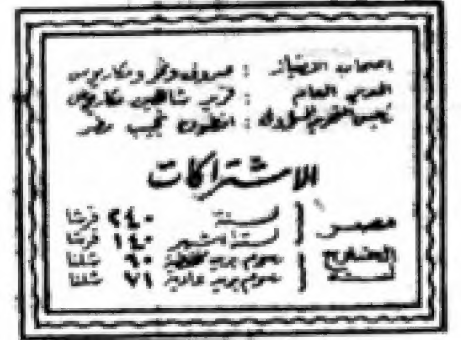 اصحاب الامتياز : صروف ونمر ومكاريوس
المدير العام : فريد شاهين مكاريوس
رئيس التحرير المسئول : انطون نجيب مطر
الاشتراكات
مصر لسنة ٢٤٠ قرشا
لستة اشهر ١٤٠ قرشا
الخارج رسوم بريد ٦٠ شلنا
لسنة رسوم بريد عادية ٧١ شلنا